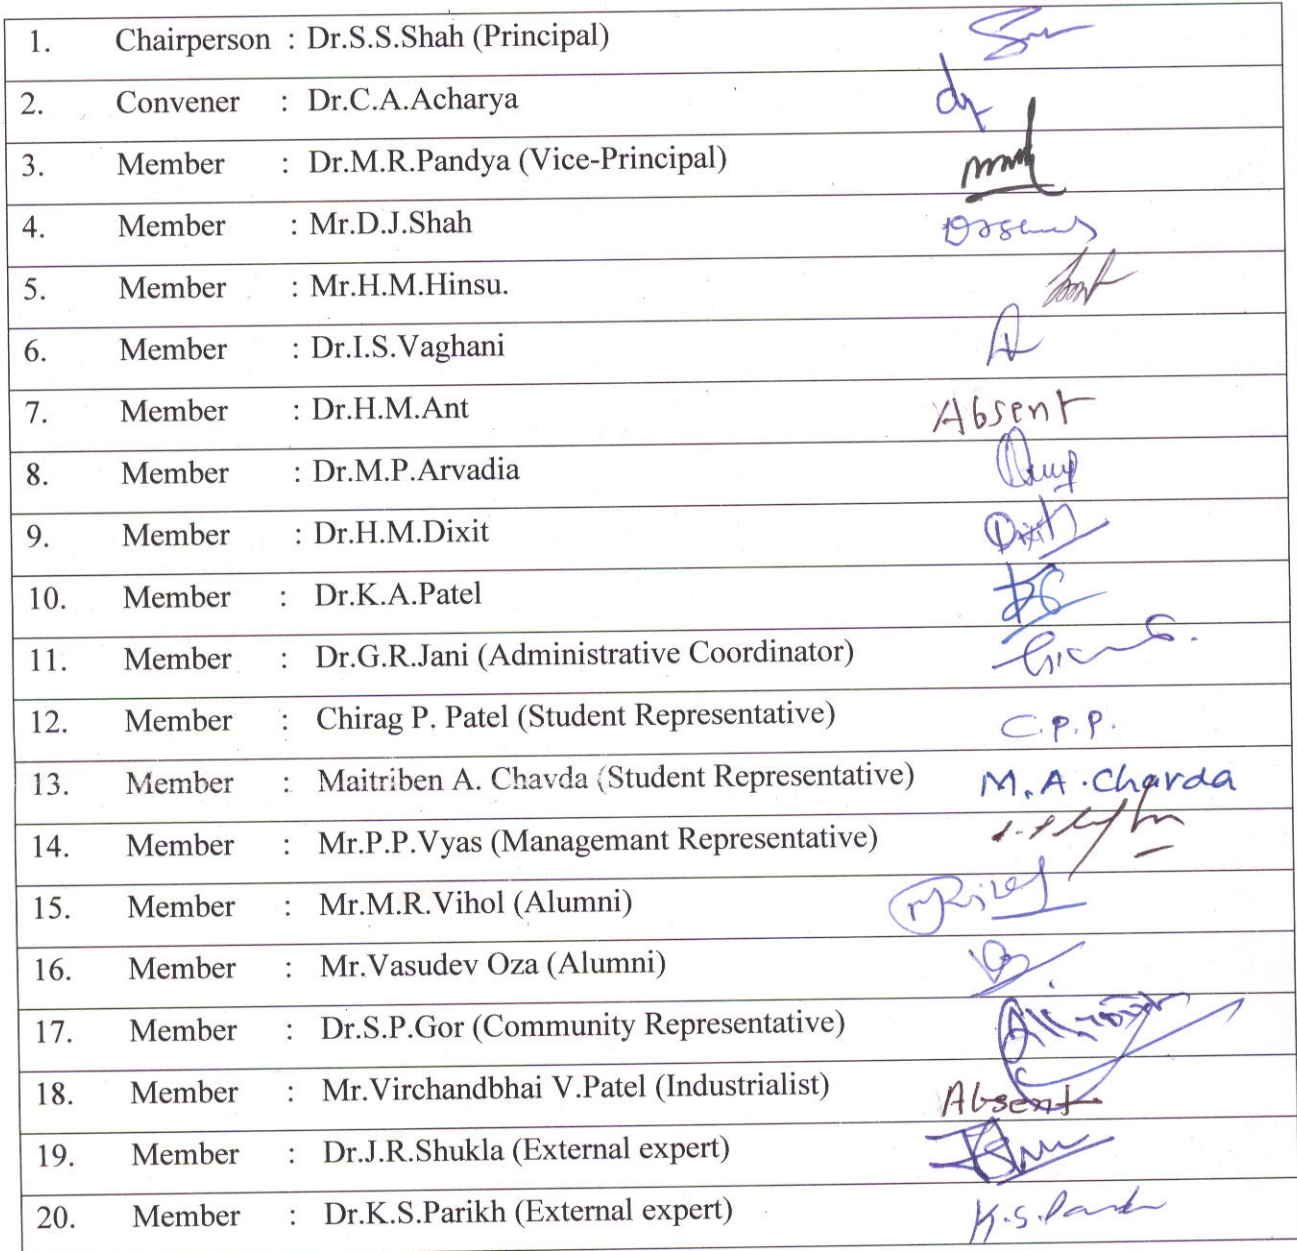 1. Chairperson : Dr.S.S.Shah (Principal)
2. Convener : Dr.C.A.Acharya
3. Member : Dr.M.R.Pandya (Vice-Principal)
4. Member : Mr.D.J.Shah
5. Member : Mr.H.M.Hinsu.
6. Member : Dr.I.S.Vaghani
7. Member : Dr.H.M.Ant Absent
8. Member : Dr.M.P.Arvadia
9. Member : Dr.H.M.Dixit Dixit
10. Member : Dr.K.A.Patel
11. Member : Dr.G.R.Jani (Administrative Coordinator)
12. Member : Chirag P. Patel (Student Representative) C.P.P.
13. Member : Maitriben A. Chavda (Student Representative) M.A.Chavda
14. Member : Mr.P.P.Vyas (Managemant Representative)
15. Member : Mr.M.R.Vihol (Alumni)
16. Member : Mr.Vasudev Oza (Alumni)
17. Member : Dr.S.P.Gor (Community Representative)
18. Member : Mr.Virchandbhai V.Patel (Industrialist) Absent
19. Member : Dr.J.R.Shukla (External expert)
20. Member : Dr.K.S.Parikh (External expert) K.S.